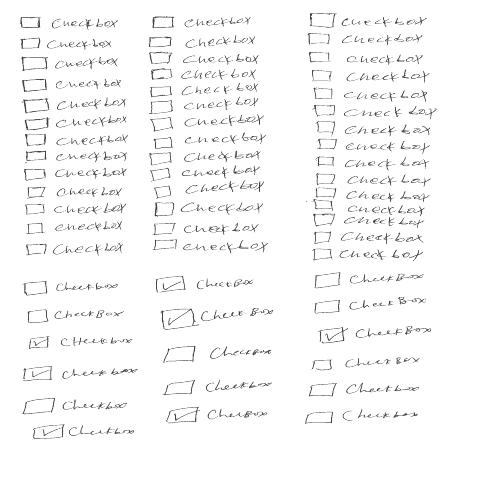 Checkbox
Checkbox
Checkbox
Checkbox
Checkbox
Checkbox
Checkbox
Checkbox
Checkbox
Checkbox
Checkbox
Checkbox
Checkbox
Checkbox
CheckBox
CHeckbox
Checkbox
Checkbox
Checkbox
Checkbox
Checkbox
Checkbox
Checkbox
Checkbox
Checkbox
Checkbox
Checkbox
Checkbox
Checkbox
Checkbox
Checkbox
Checkbox
Checkbox
CheckBox
Check Box
CheckBox
Checkbox
CheckBox
Checkbox
Checkbox
Checkbox
Checkbox
Checkbox
Checkbox
Checkbox
Checkbox
Checkbox
Checkbox
Checkbox
Checkbox
Checkbox
Checkbox
Checkbox
CheckBox
CheckBox
CheckBox
CheckBox
CheckBox
Checkbox